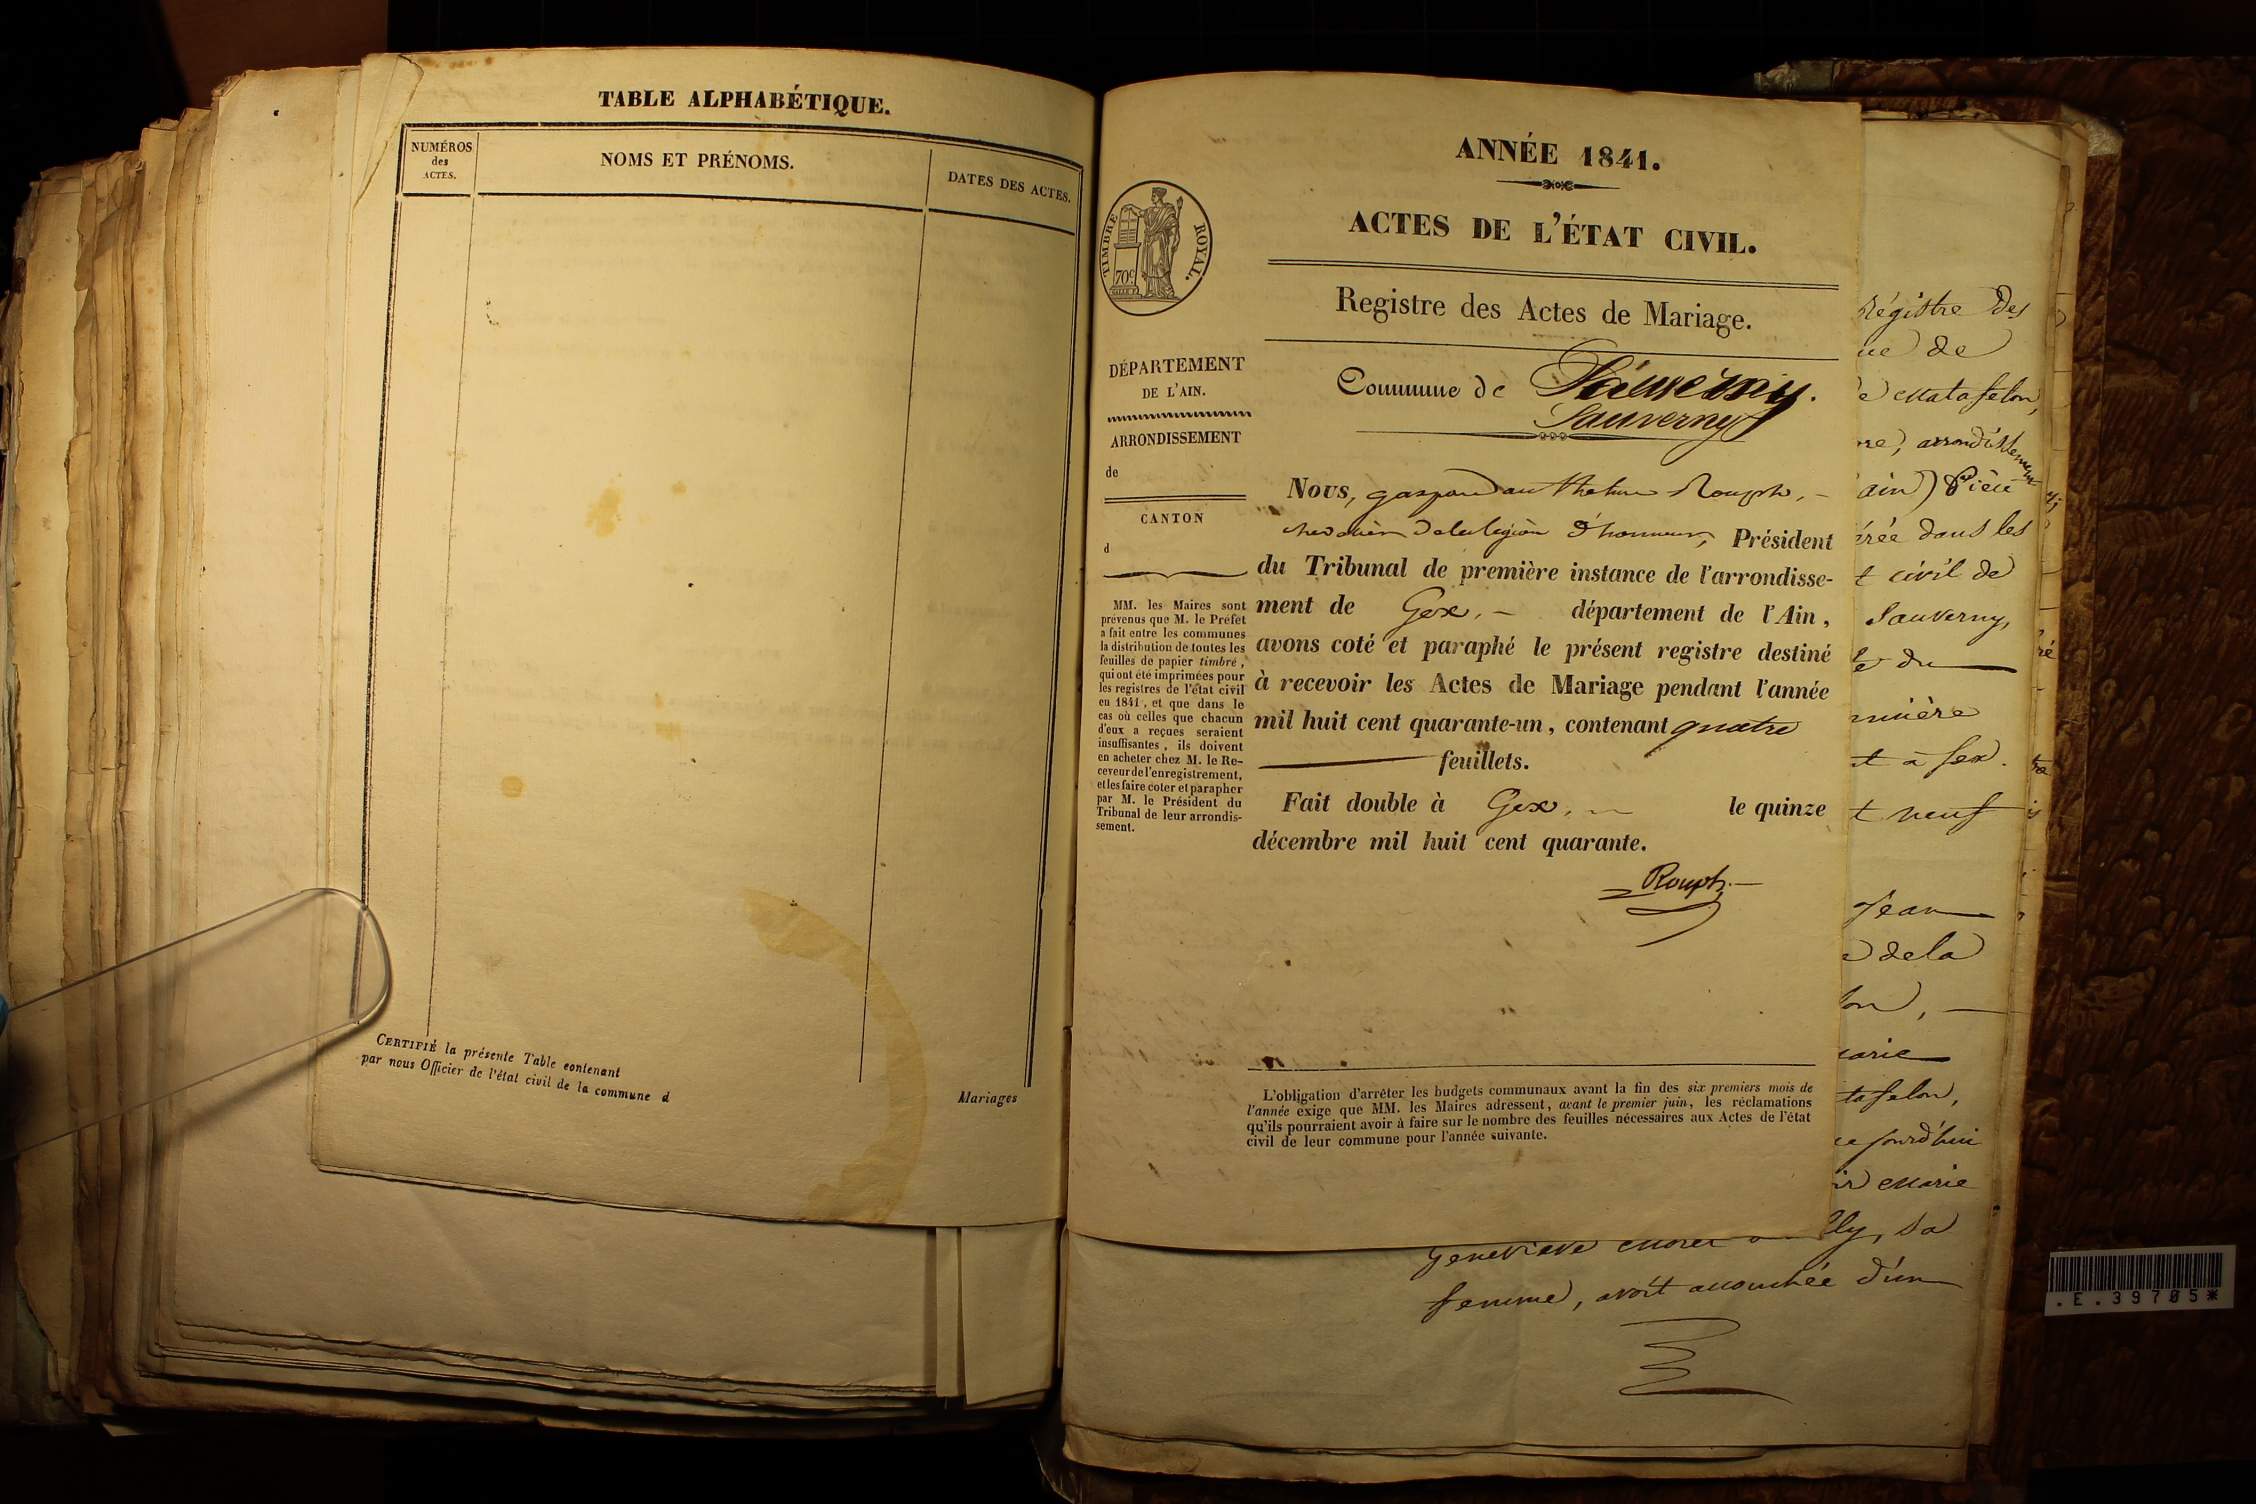 TABLE ALPHABÉTIQUE.
NUMÉROS
des
ACTES.
NOMS ET PRÉNOMS.
DATES DES ACTES.
CERTIFIÉ la présente Table contenant
par nous Officier de l'état civil de la commune d
Mariages
ANNÉE 1841.
ACTES DE L'ÉTAT CIVIL.
TIMBRE ROYAL.
70c
Registre des Actes de Mariage.
DÉPARTEMENT
DE L'AIN.
ARRONDISSEMENT
de
CANTON
d
MM. les Maires sont
prévenus que M. le Préfet
a fait entre les communes
la distribution de toutes les
feuilles de papier timbré,
qui ont été imprimées pour
les registres de l'état civil
en 1841, et que dans le
cas où celles que chacun
d'eux a reçues seraient
insuffisantes, ils doivent
en acheter chez M. le Re-
ceveur de l'enregistrement,
et les faire coter et parapher
par M. le Président du
Tribunal de leur arrondis-
sement.
Commune de
Sauverny
Nous, gaspard anthelme Rouph,
chevalier de la légion d'honneur, Président
du Tribunal de première instance de l'arrondisse-
ment de Gex. département de l'Ain,
avons coté et paraphé le présent registre destiné
à recevoir les Actes de Mariage pendant l'année
mil huit cent quarante-un, contenant quatre
feuillets.
Fait double à Gex, le quinze
décembre mil huit cent quarante.
Rouph
L'obligation d'arrêter les budgets communaux avant la fin des six premiers mois de
l'année exige que MM. les Maires adressent, avant le premier juin, les réclamations
qu'ils pourraient avoir à faire sur le nombre des feuilles nécessaires aux Actes de l'état
civil de leur commune pour l'année suivante.
Régistre des
de
Matafelon,
arrondissement
ain)
dans les
civil de
Sauverny,
du
à Gex.
neuf
Jean
de la
Marie
sa
Genevieve
femme, avoit accouchée d'un
.E.39705*